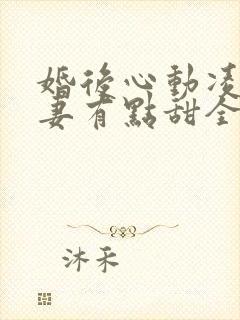 婚後心動凌
妻有點甜全
沐禾